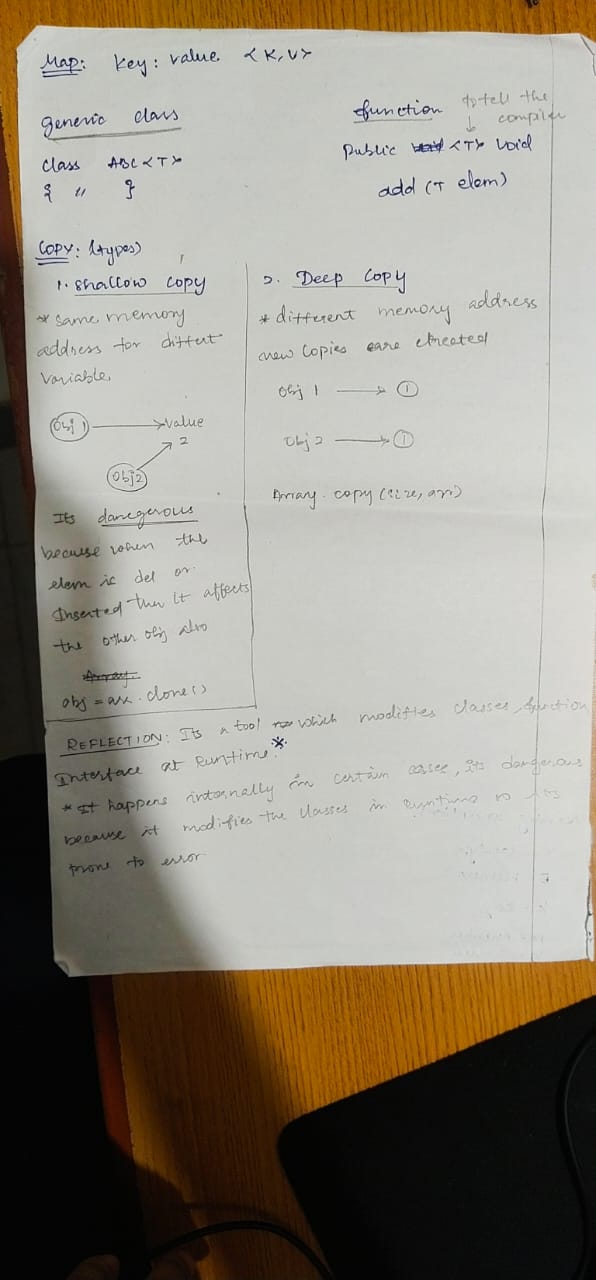 Map: Key : value <K,V>
generic class
Class ABC <T>
{ " }
function
to tell the
compiler
Public <T> void
add (T elem)
COPY: (types)
1. Shallow copy
* same memory
address for differt
Variable.
Obj 1 → value
2
Obj2
Its danegerous
because when the
elem is del or
Inserted then it affects
the other obj also
Array.
obj = arr.clone()
2. Deep Copy
* different memory address
new copies are created
Obj 1 → 1
Obj 2 → 1
Array. copy (size, arr)
REFLECTION: Its a tool which modifies classes, function,
Interface at Runtime. *
* It happens internally in certain cases, its dangerous
because it modifies the classes in runtime so its
prone to error